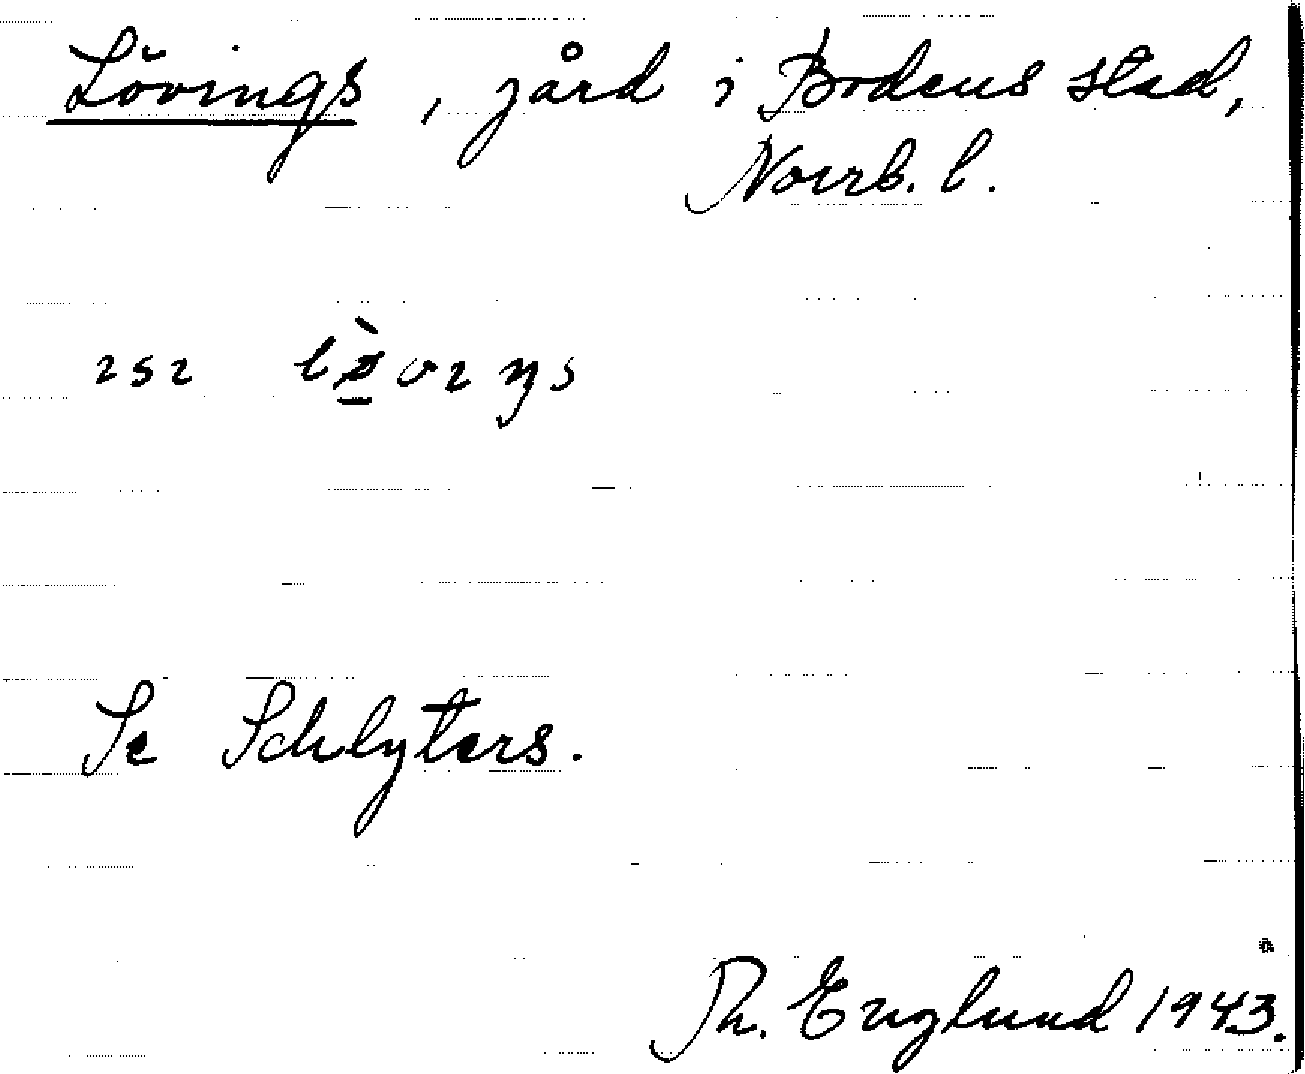 Lövings, gård i Bodens stad,
Norrb. l.
Se Schlyters.
Th. Englund 1943.